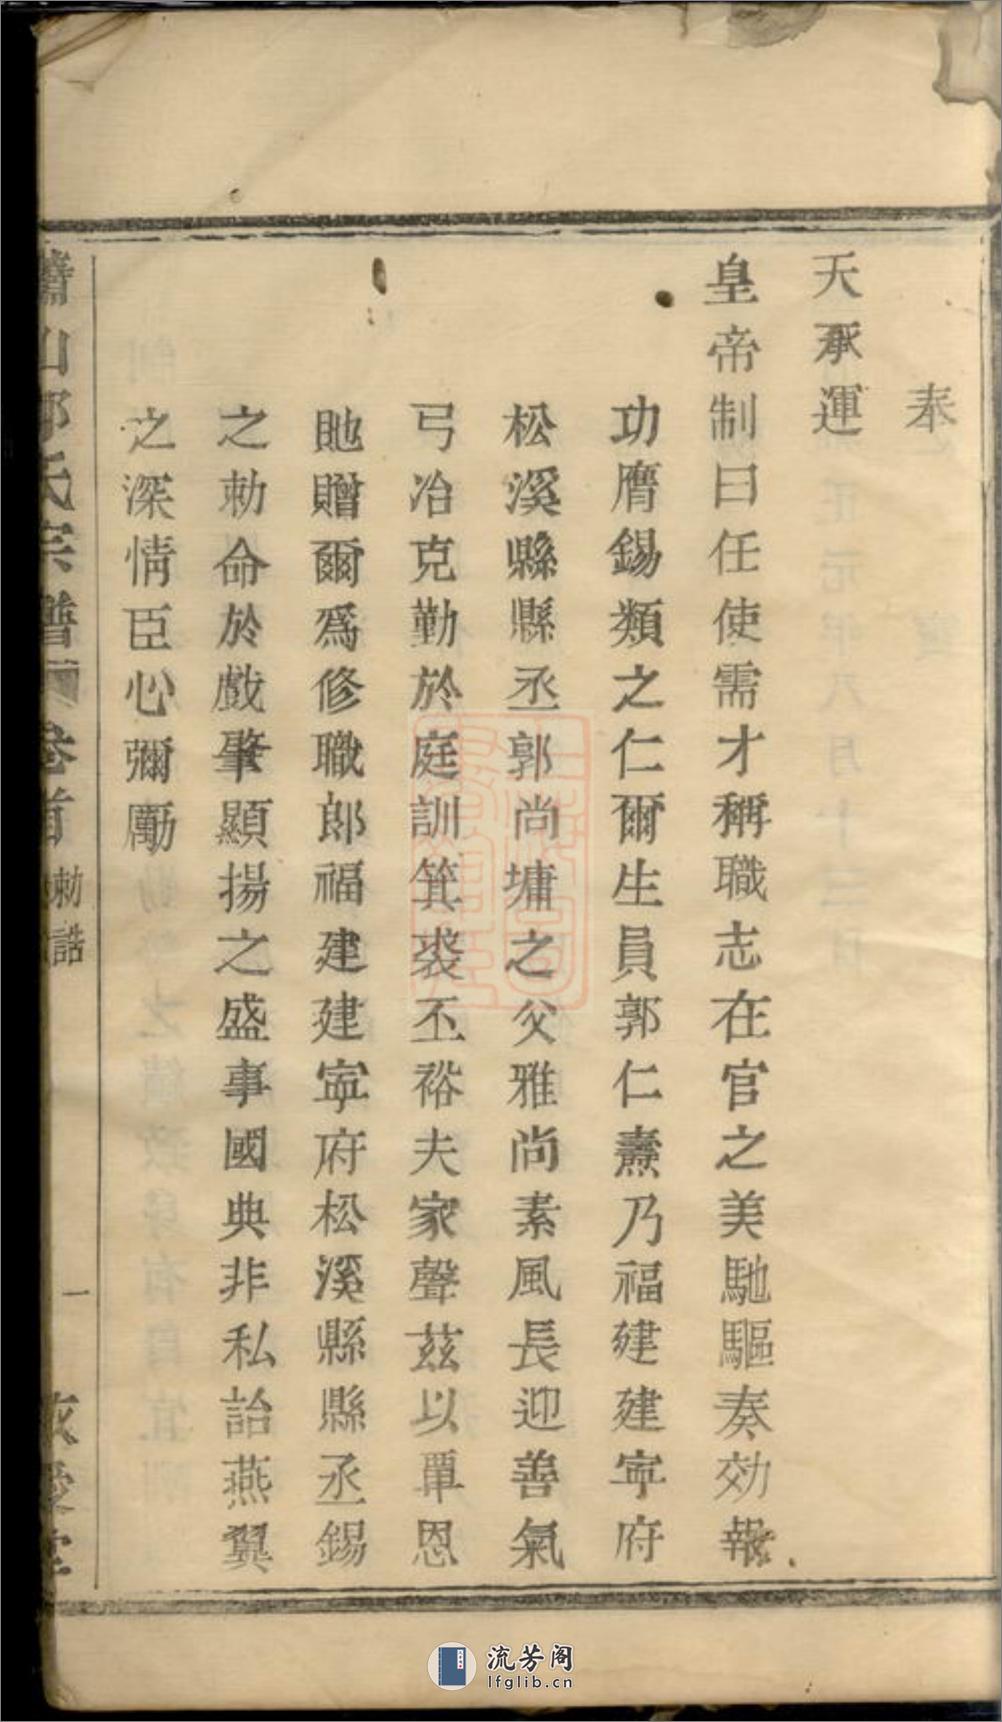 奉
天承運
皇帝制曰任使需才稱職志在官之美馳驅奏効報
功膺錫類之仁爾生員郭仁燾乃福建建寧府
松溪縣縣丞郭尚墉之父雅尚素風長迎善氣
弓冶克勤於庭訓箕裘丕裕夫家聲茲以覃恩
貤贈爾爲修職郎福建建寧府松溪縣縣丞錫
之勅命於戲肇顯揚之盛事國典非私詒燕翼
之深情臣心彌勵
山 氏宗譜 卷首 勅誥 一
流芳阁
lfglib.cn